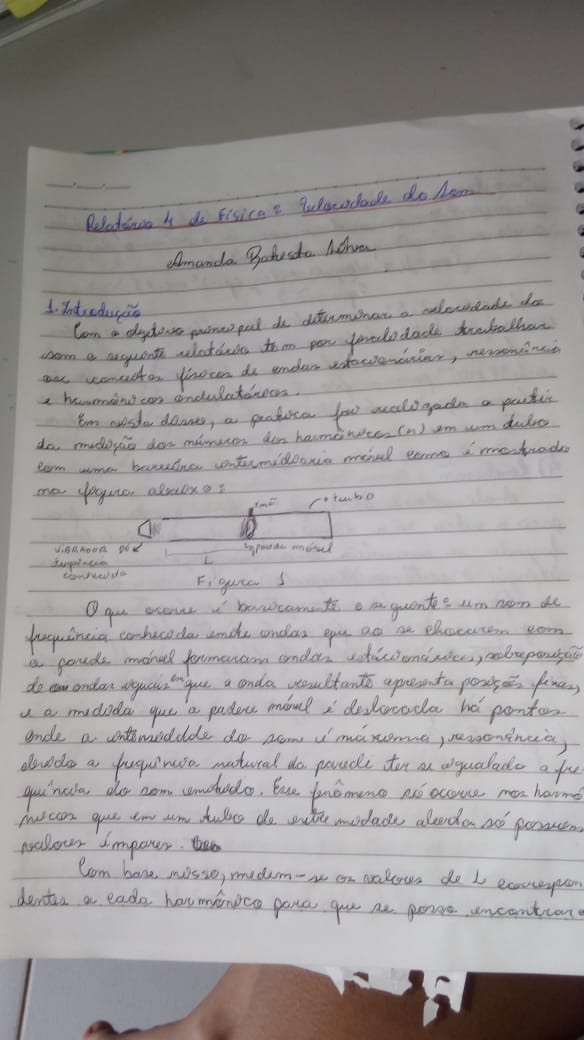 Relatório 4 de Física: Velocidade do Som
Amanda Batista
1. Introdução
Com o objetivo principal de determinar a velocidade do
som o seguinte relatório tem por finalidade trabalhar
conceitos físicos de ondas estacionárias, ressonância
e harmônicos ondulatórios.
Em vista disso, a prática foi realizada a partir
da medição dos números dos harmônicos (n) em um tubo
com uma barreira intermediaria móvel como é mostrado
na figura abaixo:
imã
tubo
VIBRADOR DE
frequência
conhecida
L
parede móvel
Figura 1
O que ocorre é basicamente o seguinte: um som de
frequência conhecida emite ondas que ao se chocarem com
a parede móvel formaram ondas estacionárias, sobreposição
de ondas iguais em que a onda resultante apresenta posições fixas,
e a medida que a padere móvel é deslocada há pontos
onde a intensidade do som é máxima, ressonância,
devido a frequência natural da parede ter se igualado a fre
quência do som emitido. Esse fenômeno só ocorre nos harmô
nicos que em um tubo de extremidade aberta só possuem
valores ímpares.
Com base nisso, medem-se os valores de L correspon
dentes a cada harmônico para que se possa encontrar a